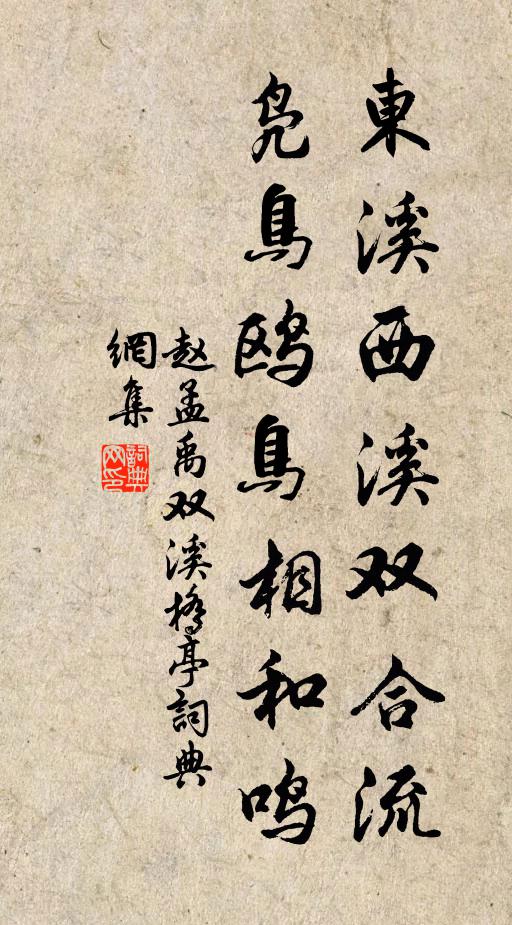 東溪西溪双合流
凫鳥鸥鳥相和鸣
赵孟禹双溪橋亭詞典
網集
詞典
网印